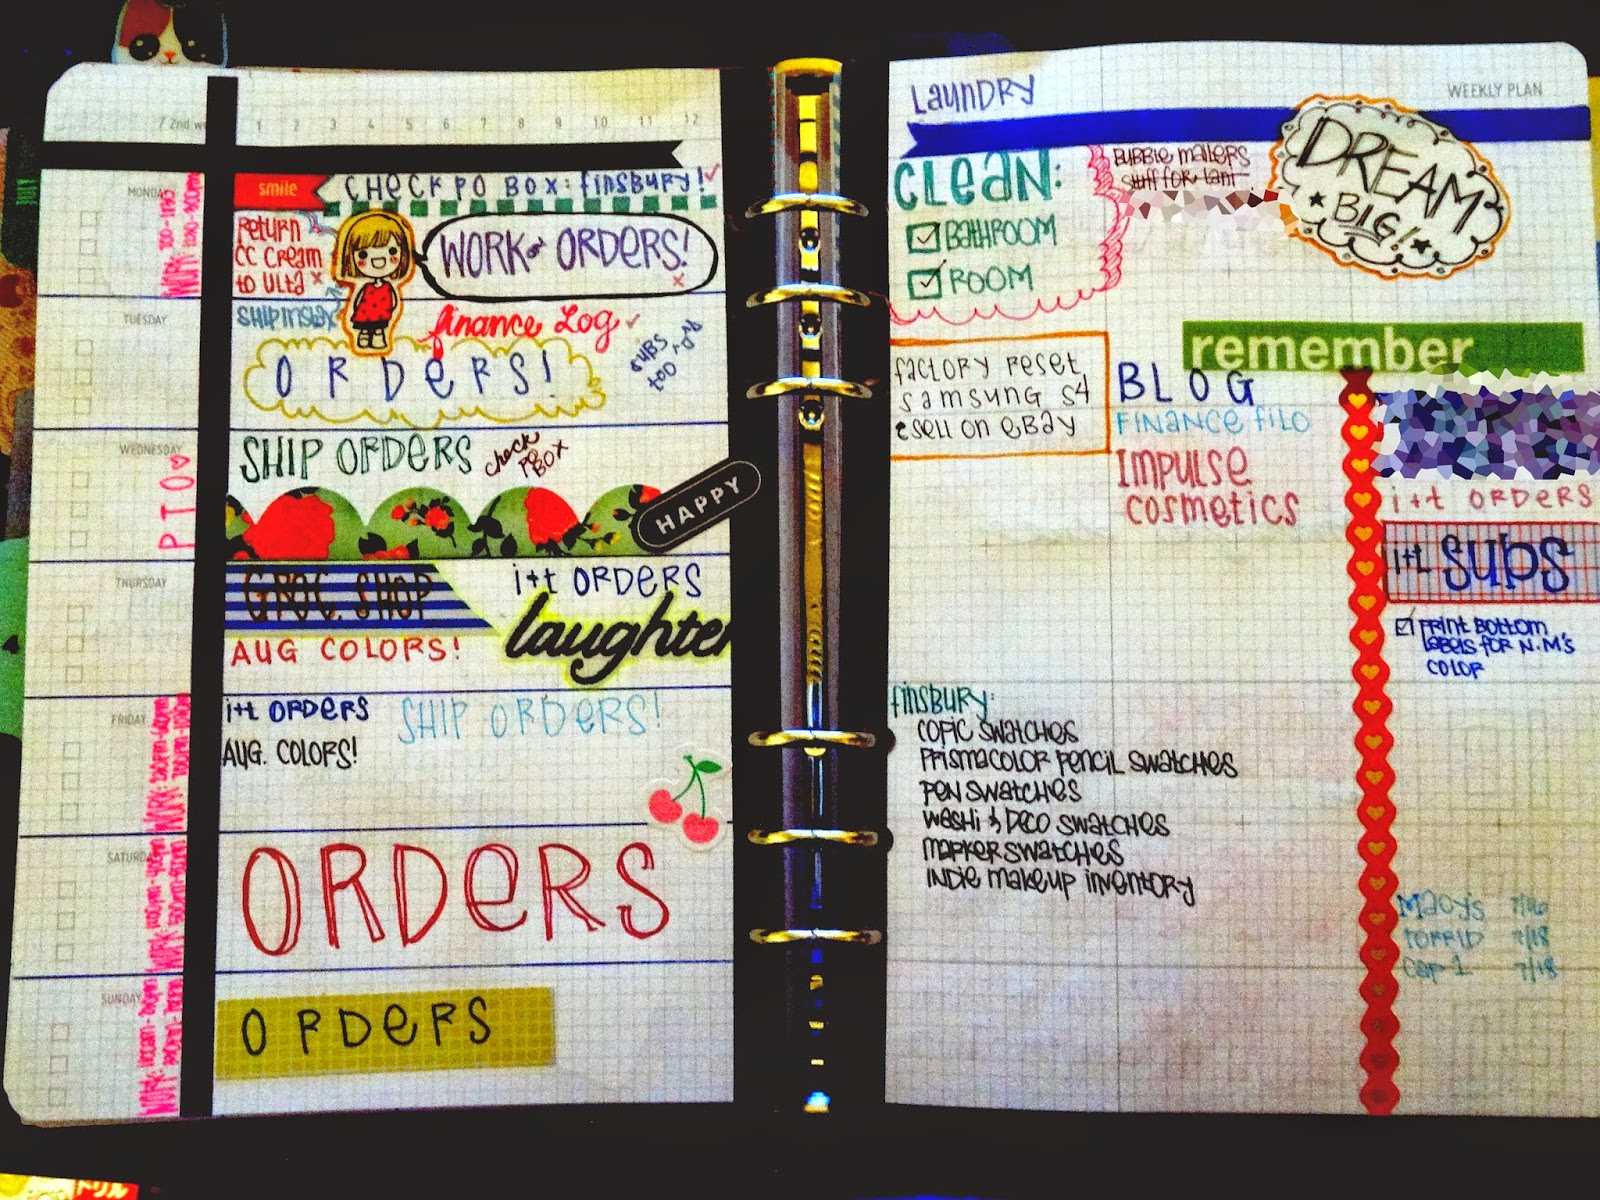 1 2 3 4 5 6 7 8 9 10 11 12
MONDAY
smile
CHECK PO BOX: FINSBURY!
Return
CC Cream
to Ulta
WORK ON ORDERS!
TUESDAY
finance Log
ORDERS!
WEDNESDAY
PTO
SHIP ORDERS
check
PO
BOX
HAPPY
THURSDAY
GROC SHOP
i+t ORDERS
laughter
AUG COLORS!
FRIDAY
i+t ORDERS
SHIP ORDERS!
AUG. COLORS!
SATURDAY
ORDERS
SUNDAY
ORDERS
LAUNDRY
WEEKLY PLAN
CLEAN:
BATHROOM
ROOM
BUBBLE MAILERS
DREAM
BIG!
factory reset
samsung S4
& sell on eBay
remember
BLOG
FINANCE FILO
Impulse
cosmetics
i+t ORDERS
i+t subs
Print Bottom
labels for N.M's
color
FINSBURY:
COPIC SWATCHES
PRISMACOLOR PENCIL SWATCHES
PEN SWATCHES
WASHI & DECO SWATCHES
MARKER SWATCHES
INDIE MAKEUP INVENTORY
Macy's 7/16
TORRID 7/18
Cap 1 7/18
ドリル